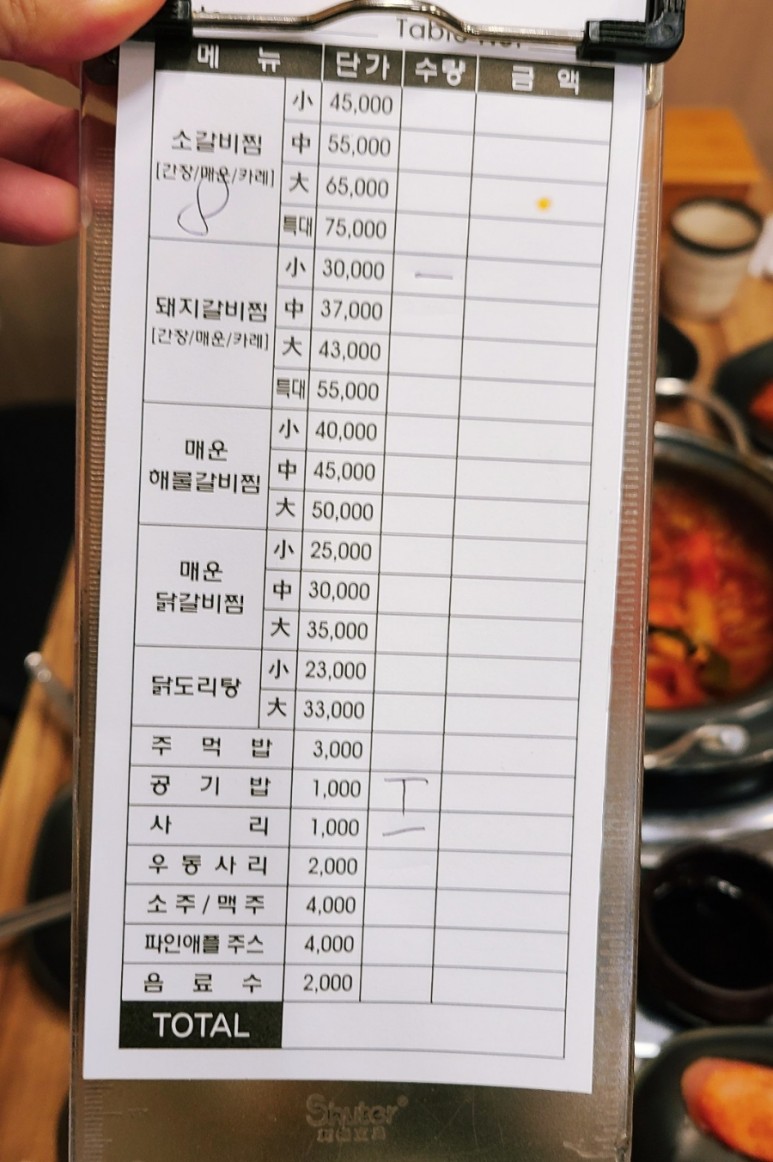 Table No.
메 뉴 단가 수량 금 액
소갈비찜
[간장/매운/카레]
小 45,000
中 55,000
大 65,000
특대 75,000
돼지갈비찜
[간장/매운/카레]
小 30,000 一
中 37,000
大 43,000
특대 55,000
매운
해물갈비찜
小 40,000
中 45,000
大 50,000
매운
닭갈비찜
小 25,000
中 30,000
大 35,000
닭도리탕
小 23,000
大 33,000
주 먹 밥 3,000
공 기 밥 1,000 丅
사 리 1,000 一
우 동 사 리 2,000
소 주 / 맥 주 4,000
파인애플 주스 4,000
음 료 수 2,000
TOTAL
Shuter®